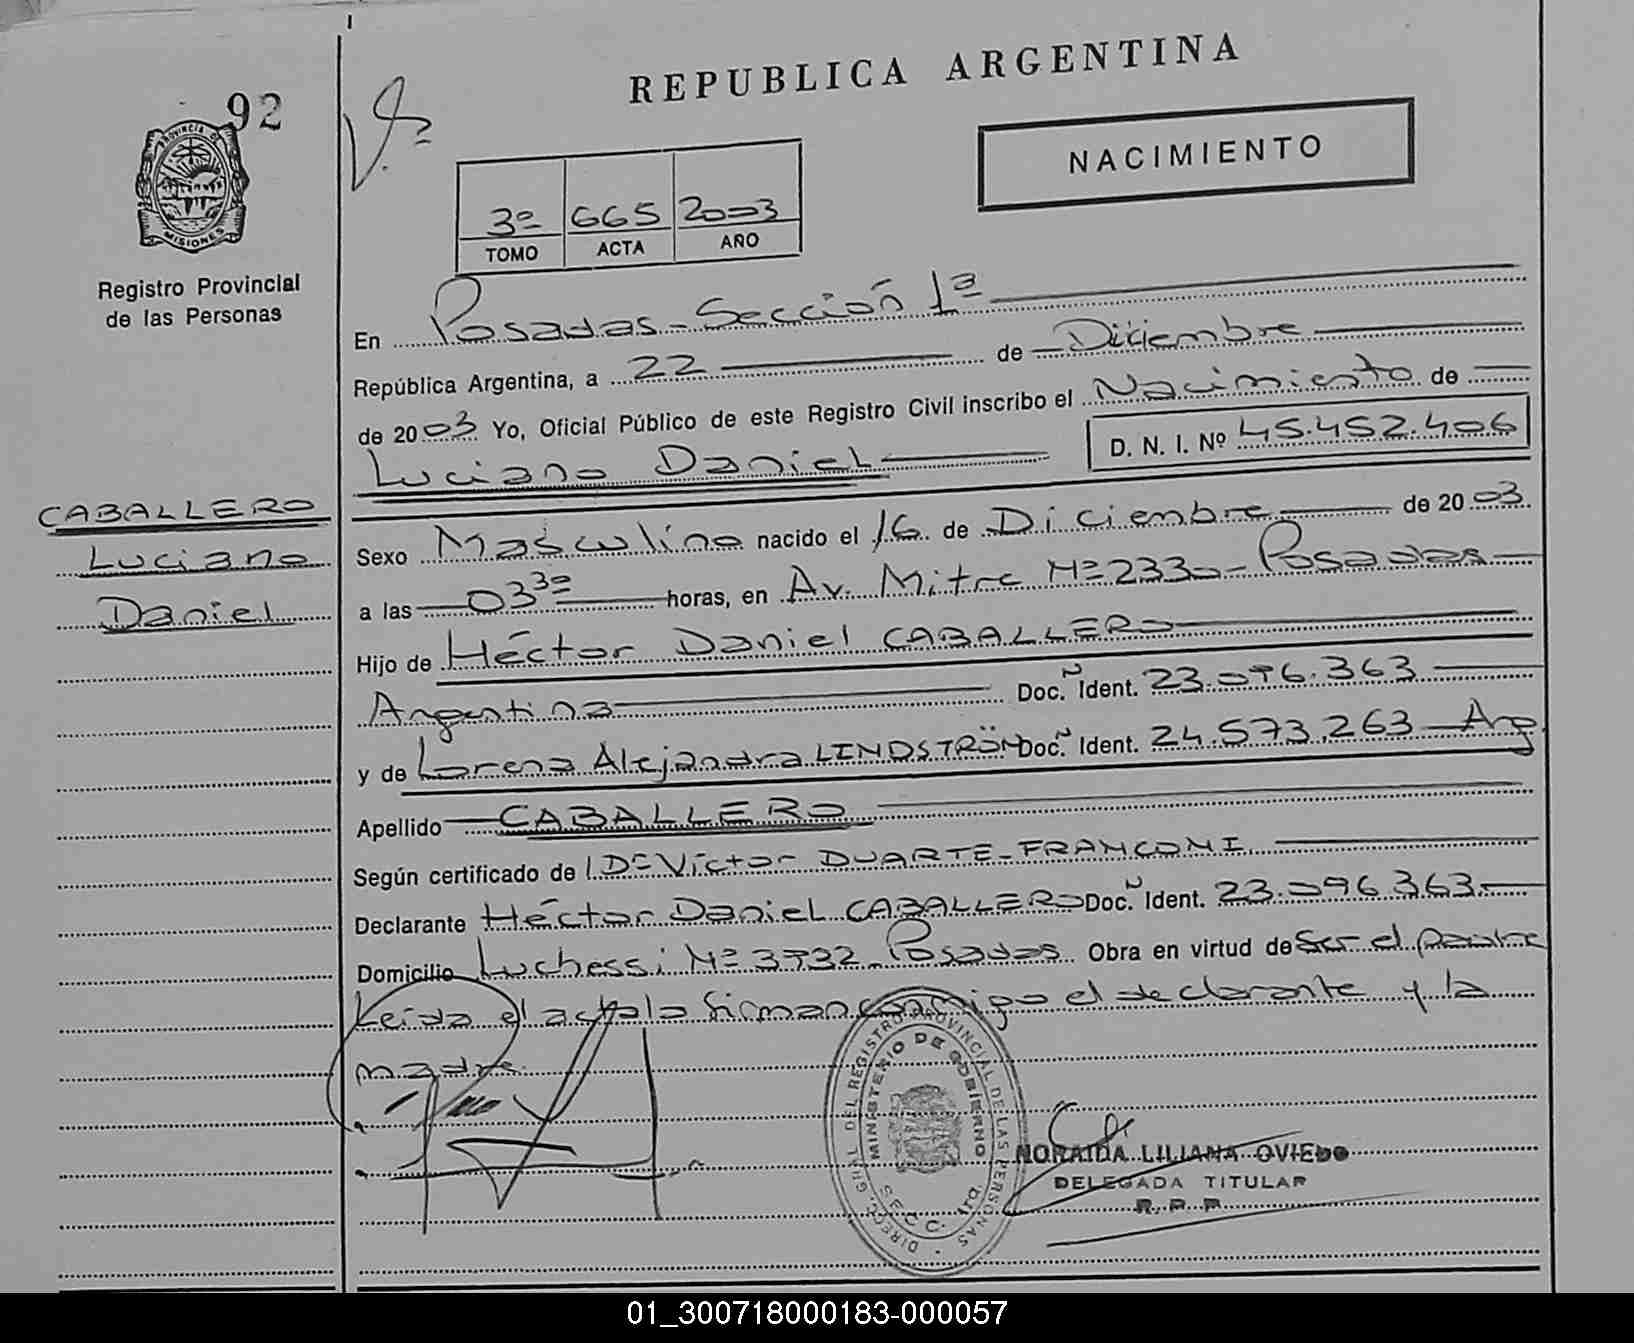 REPUBLICA ARGENTINA
92
PROVINCIA DE
MISIONES
NACIMIENTO
3º 665 2003
TOMO ACTA AÑO
Registro Provincial
de las Personas
En Posadas - Sección 1ª
República Argentina, a 22 de Diciembre
de 2003 Yo, Oficial Público de este Registro Civil inscribo el Nacimiento de
Luciano Daniel D. N. I. Nº 45.452.406
CABALLERO
Luciano
Daniel
Sexo Masculino nacido el 16 de Diciembre de 2003
a las 03 30 horas, en Av. Mitre Nº 2330 - Posadas
Hijo de Héctor Daniel CABALLERO
Argentina Doc. Ident. 23.096.363
y de Lorena Alejandra LINDSTRÖN Doc. Ident. 24.573.263 - Arg
Apellido CABALLERO
Según certificado de Dr Víctor DUARTE - FRANCONI
Declarante Héctor Daniel CABALLERO Doc. Ident. 23.096.363
Domicilio Luchessi Nº 3732 - Posadas Obra en virtud de Ser el padre
Leída el acta la firman conmigo el declarante y la
madre.
DIREC. GRAL. DEL REGISTRO PROVINCIAL DE LAS PERSONAS
MINISTERIO DE GOBIERNO
SECC. 1ra
NORAIDA LILIANA OVIEDO
DELEGADA TITULAR
R. P. P.
01_300718000183-000057